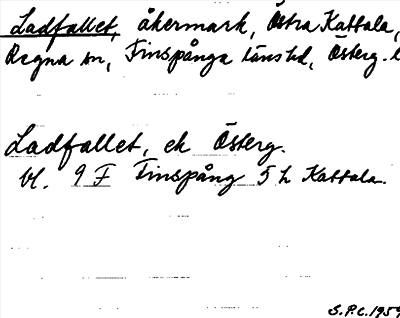 Ladfallet, åkermark, Östra Kattala,
Regna sn, Finspånga länstd, Österg. l
Ladfallet, ek Österg.
bl. 9 F Finspång 5 h Kattala.
S.P.C. 1959